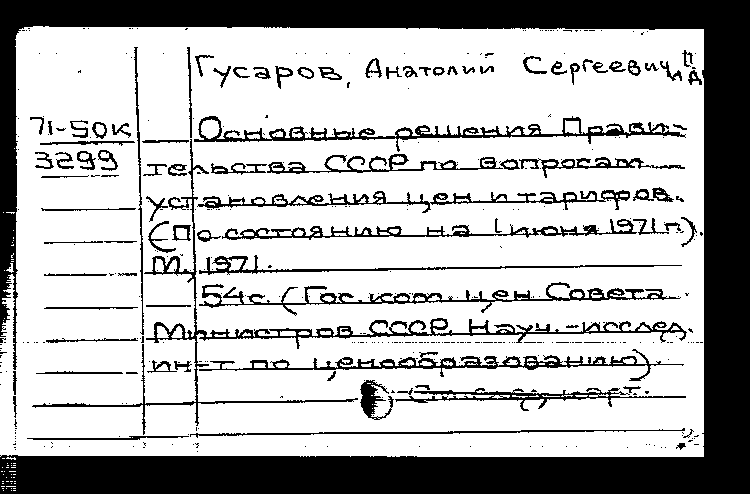 Гусаров, Анатолий Сергеевич и д
71-50к Основные решения Прави-
3299 тельства СССР по вопросам
установления цен и тарифов.
(По состоянию на 1 июня 1971 г.).
М., 1971.
54с. (Гос. ком. цен Совета
Министров СССР. Науч.-исслед.
ин-т по ценообразованию).
См. след. карт.